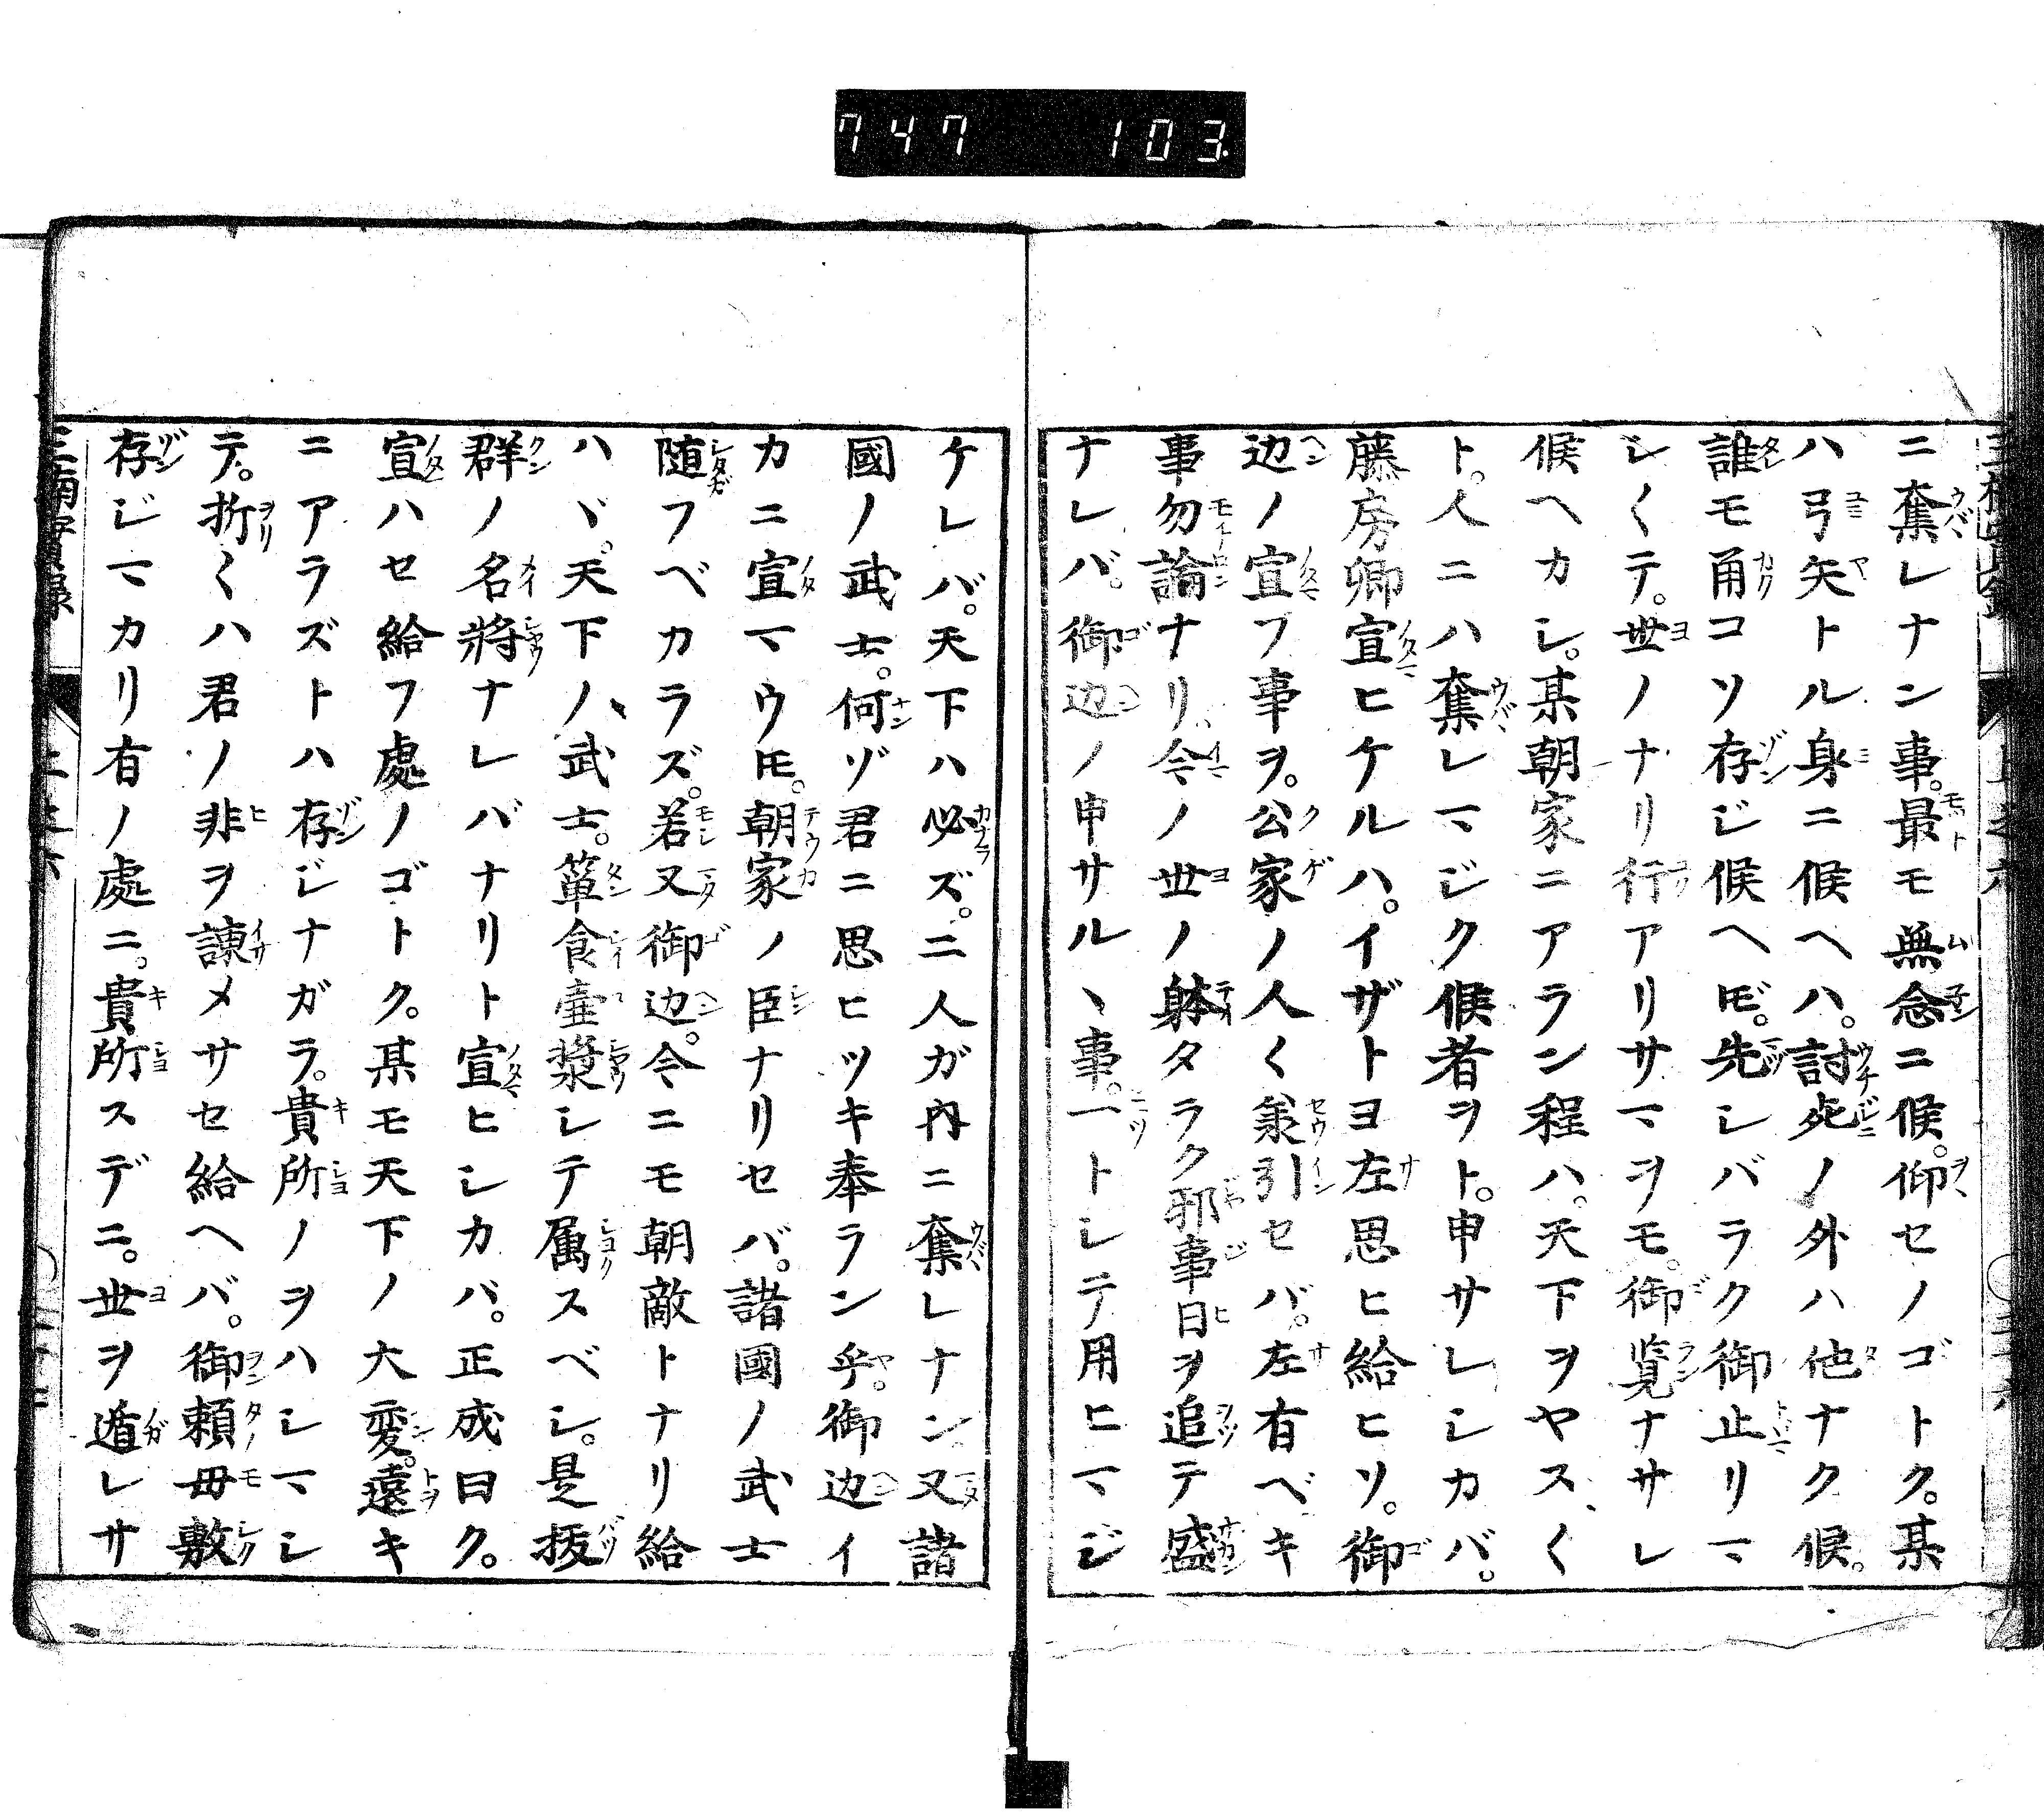 747 103
ニ奪レナン事。最モ無念ニ候。仰セノゴトク。某
ハ弓矢トル身ニ候ヘハ。討死ノ外ハ他ナク候。
誰モ角コソ存ジ候ヘ𪜈。先シバラク御止リマ
シ〱テ。世ノナリ行アリサマヲモ。御覧ナサレ
候ヘカシ。某朝家ニアラン程ハ。天下ヲヤス〱
ト。人ニハ奪レマジク候者ヲト。申サレシカバ。
藤房卿宣ヒケルハ。イザトヨ左思ヒ給ヒソ。御
辺ノ宣フ事ヲ。公家ノ人〱承引セバ。左有ベキ
事勿論ナリ、今ノ世ノ躰タラク邪事日ヲ追テ盛
ナレバ。御辺ノ申サルヽ事。一トシテ用ヒマジ
ケレバ。天下ハ必ズ。二人ガ内ニ奪レナン。又諸
國ノ武士。何ゾ君ニ思ヒツキ奉ラン乎。御辺イ
カニ宣マウ𪜈。朝家ノ臣ナリセバ。諸國ノ武士
随フベカラズ。若又御辺。今ニモ朝敵トナリ給
ハヾ。天下ノ武士。簞食壷漿シテ属スベシ。是抜
群ノ名將ナレバナリト宣ヒシカバ。正成曰ク。
宣ハセ給フ處ノゴトク。某モ天下ノ大変。遠キ
ニアラズトハ存ジナガラ。貴所ノヲハシマシ
テ。折〱ハ君ノ非ヲ諫メサセ給ヘバ。御頼毋敷
存ジマカリ有ノ處ニ。貴所スデニ。世ヲ遁レサ